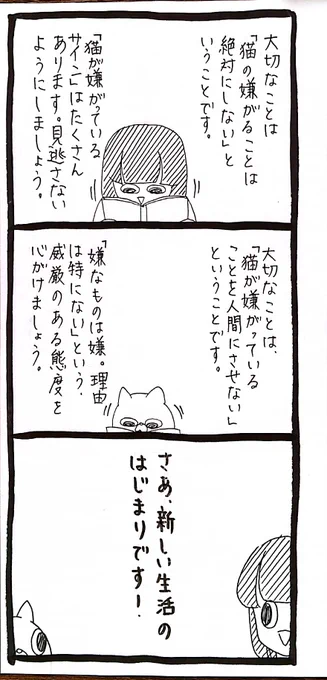 大切なことは
「猫の嫌がることは
絶対にしない」と
いうことです。
「猫が嫌がっている
サイン」はたくさん
あります。見逃さない
ようにしましょう。
大切なことは、
「猫が嫌がっている
ことを人間にさせない」
ということです。
「嫌なものは嫌。理由
は特にない」という、
威厳のある態度を
心がけましょう。
さあ、新しい生活の
はじまりです!